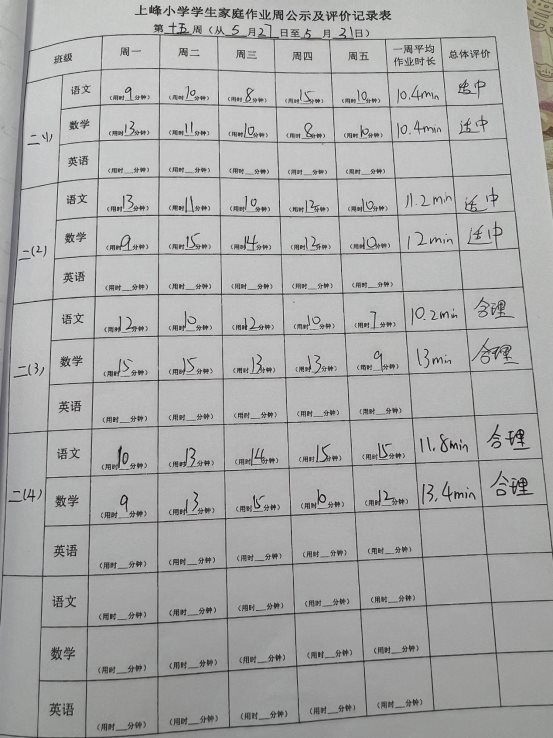 上峰小学学生家庭作业周公示及评价记录表
第 十五 周（从 5 月 27 日至 5 月 31 日）
班级 周一 周二 周三 周四 周五 一周平均作业时长 总体评价
二(1) 语文 （用时 9 分钟） （用时 10 分钟） （用时 8 分钟） （用时 15 分钟） （用时 10 分钟） 10.4min 适中
数学 （用时 13 分钟） （用时 11 分钟） （用时 10 分钟） （用时 8 分钟） （用时 10 分钟） 10.4min 适中
英语 （用时__分钟） （用时__分钟） （用时__分钟） （用时__分钟） （用时__分钟）
二(2) 语文 （用时 13 分钟） （用时 11 分钟） （用时 10 分钟） （用时 12 分钟） （用时 10 分钟） 11.2min 适中
数学 （用时 9 分钟） （用时 15 分钟） （用时 14 分钟） （用时 12 分钟） （用时 10 分钟） 12min 适中
英语 （用时__分钟） （用时__分钟） （用时__分钟） （用时__分钟） （用时__分钟）
二(3) 语文 （用时 12 分钟） （用时 10 分钟） （用时 12 分钟） （用时 10 分钟） （用时 7 分钟） 10.2min 合理
数学 （用时 15 分钟） （用时 15 分钟） （用时 13 分钟） （用时 13 分钟） （用时 9 分钟） 13min 合理
英语 （用时__分钟） （用时__分钟） （用时__分钟） （用时__分钟） （用时__分钟）
二(4) 语文 （用时 10 分钟） （用时 13 分钟） （用时 14 分钟） （用时 15 分钟） （用时 15 分钟） 11.8min 合理
数学 （用时 9 分钟） （用时 13 分钟） （用时 15 分钟） （用时 10 分钟） （用时 12 分钟） 13.4min 合理
英语 （用时__分钟） （用时__分钟） （用时__分钟） （用时__分钟） （用时__分钟）
语文 （用时__分钟） （用时__分钟） （用时__分钟） （用时__分钟） （用时__分钟）
数学 （用时__分钟） （用时__分钟） （用时__分钟） （用时__分钟） （用时__分钟）
英语 （用时__分钟） （用时__分钟） （用时__分钟） （用时__分钟） （用时__分钟）